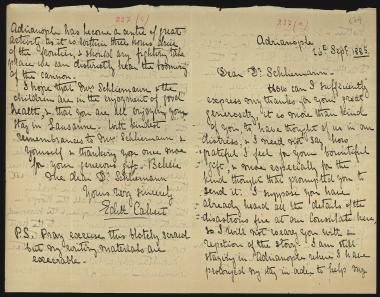 237 (a)
Adrianople
26th Sept. 1885.
Dear Dr. Schliemann
How can I sufficiently
express my thanks for your great
generosity. It is more than kind
of you to have thought of us in our
distress, & I need not say how
grateful I feel for your bountiful
gift & more especially for the
kind thought that prompted you to
send it. I suppose you have
already heard all the details of the
disastrous fire at our Consulate here
so I will not weary you with a
repetition of the story. I am still
staying in Adrianople where I have
prolonged my stay in order to help my
237 (c)
Adrianople has become a centre of great
activity as it is within three hours drive
of the frontier, & should any fighting take
place we can distinctly hear the booming
of the cannon.
I hope that Mrs Schliemann & the
children are in the enjoyment of good
health, & that you are all enjoying your
stay in Lausanne. With kindest
remembrances to Mrs Schliemann &
yourself & thanking you once more
for your generous gift. Believe
me dear Dr. Schliemann
Yours very sincerely
Edith Calvert
P.S. Pray excuse this blotchy scrawl
but my writing materials are
execrable.